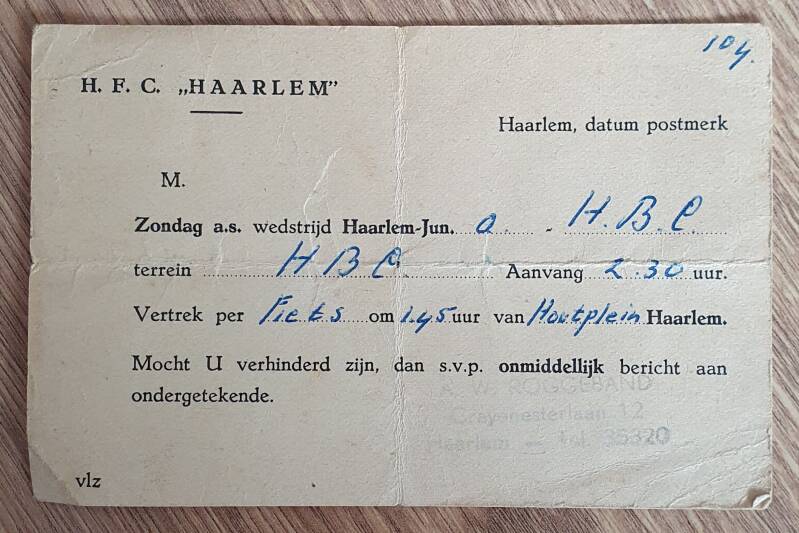 104.
H. F. C. „HAARLEM”
Haarlem, datum postmerk
M.
Zondag a.s. wedstrijd Haarlem-Jun. a - H.B.C.
terrein H B C Aanvang 2.30 uur.
Vertrek per Fiets om 1.45 uur van Houtplein Haarlem.
Mocht U verhinderd zijn, dan s.v.p. onmiddellijk bericht aan
ondergetekende.
A. W. ROGGEBAND
12
Haarlem — tel. 35320
vlz